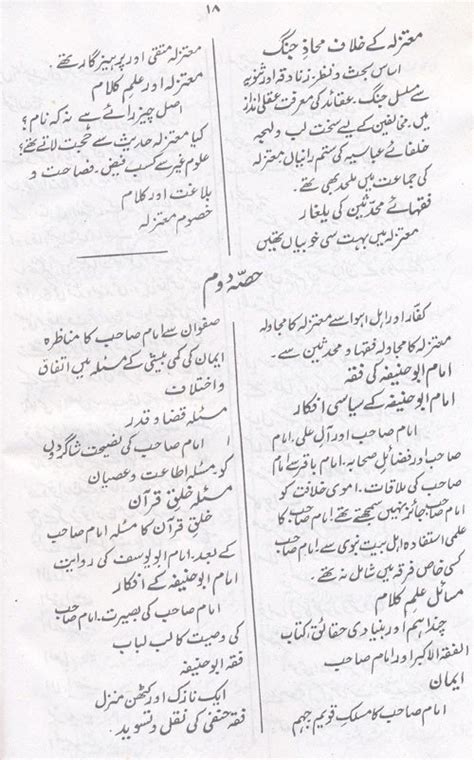 ۱۸
معتزلہ کے خلاف محاذِ جنگ
اساس بحث و نظر، زنادقہ اور ثنویہ
سے مسلسل جنگ۔ عقائد کی معرفت عقلی انداز
میں۔ مخالفین کے لیے سخت لب ولہجہ
خلفائے عباسیہ کی ستم رانیاں، معتزلہ
کی جماعت میں ملحد بھی تھے۔
فقہائے محدثین کی یلغار
معتزلہ میں بہت سی خوبیاں تھیں
معتزلہ متقی اور پرہیزگار تھے۔
معتزلہ اور علمِ کلام
اصل چیز رائے ہے نہ کہ نام؟
کیا معتزلہ حدیث سے حجت لاتے تھے؟
علومِ غیر سے کسب فیض۔ فصاحت و
بلاغت اور کلام
خصوم معتزلہ
حصّہ دوم
کفّار اور اہل اہوا سے معتزلہ کا مجادلہ
معتزلہ کا مجادلہ فقہا و محدثین سے۔
امام ابوحنیفہ کی فقہ
امام ابوحنیفہ کے سیاسی افکار
امام صاحب اور آلِ علی۔ امام
صاحب اور فضائلِ صحابہ۔ امام باقر سے امام
صاحب کی ملاقات۔ اموی خلافت کو
امام صاحب جائز نہیں سمجھتے تھے! امام صاحب کا
علمی استفادہ اہل بیت نبوی سے! امام صاحب
کسی خاص فرقہ میں شامل نہ تھے۔
مسائل علمِ کلام
چند اہم اور بنیادی حقائق، کتاب
الفقہ الاکبر اور امام صاحب
ایمان
امام صاحب کا مسلک قویم جہم
صفوان سے امام صاحب کا مناظرہ
ایمان کی کمی بیشی کے مسئلہ میں اتفاق
و اختلاف
مسئلہ قضا و قدر
امام صاحب کی نصیحت شاگردوں
کو مسئلہ اطاعت و عصیان
مسئلہ خلقِ قرآن
خلقِ قرآن کا مسئلہ امام صاحب
کے بعد۔ امام ابویوسف کی روایت
امام ابوحنیفہ کے افکار
امام صاحب کی بصیرت۔ امام صاحب
کی وصیت کا لب لباب
فقہ ابوحنیفہ
ایک نازک اور کٹھن منزل
فقہ حنفی کی نقل و تسوید۔